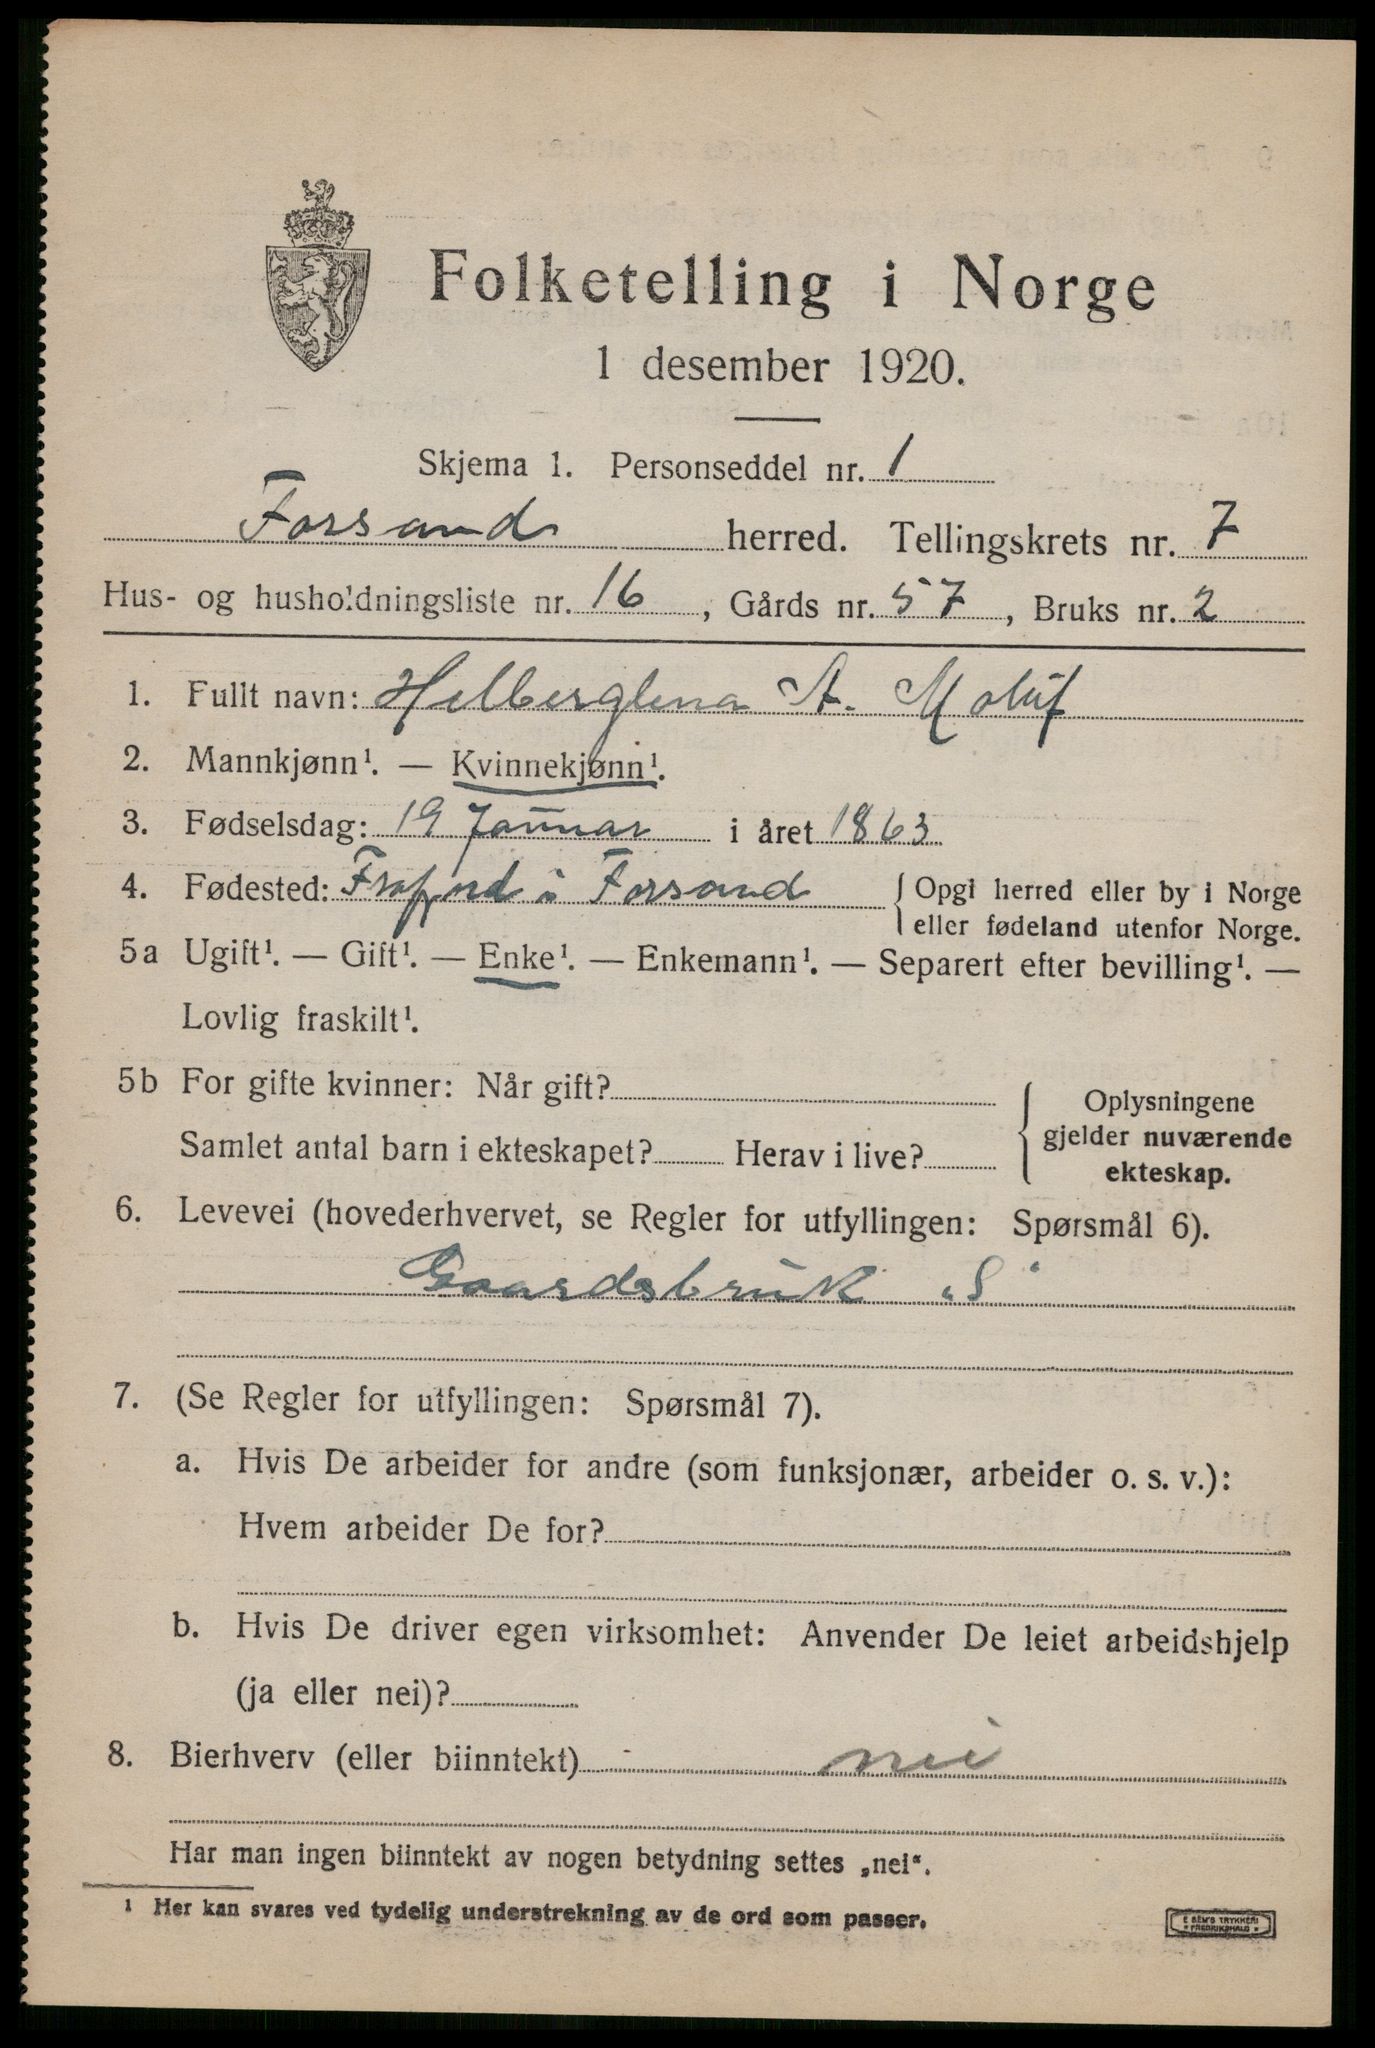 Folketelling i Norge
1 desember 1920.
Skjema 1. Personseddel nr. 1
Forsand herred. Tellingskrets nr. 7
Hus- og husholdningsliste nr. 16, Gårds nr. 57, Bruks nr. 2
1. Fullt navn: Helberglena A. Moluf
2. Mannkjønn¹. — Kvinnekjønn¹.
3. Fødselsdag: 19 Januar i året 1863
4. Fødested: Frafjord i Forsand { Opgi herred eller by i Norge
eller fødeland utenfor Norge.
5a Ugift¹. — Gift¹. — Enke¹. — Enkemann¹. — Separert efter bevilling¹. —
Lovlig fraskilt¹.
5b For gifte kvinner: Når gift?
Samlet antal barn i ekteskapet? Herav i live?
Oplysningene
gjelder nuværende
ekteskap.
6. Levevei (hovederhvervet, se Regler for utfyllingen: Spørsmål 6).
Gaardsbruk „S"
7. (Se Regler for utfyllingen: Spørsmål 7).
a. Hvis De arbeider for andre (som funksjonær, arbeider o. s. v.):
Hvem arbeider De for?
b. Hvis De driver egen virksomhet: Anvender De leiet arbeidshjelp
(ja eller nei)?
8. Bierhverv (eller biinntekt) nei
Har man ingen biinntekt av nogen betydning settes „nei“.
¹ Her kan svares ved tydelig understrekning av de ord som passer.
E SEM'S TRYKKERI
FREDRIKSHALD